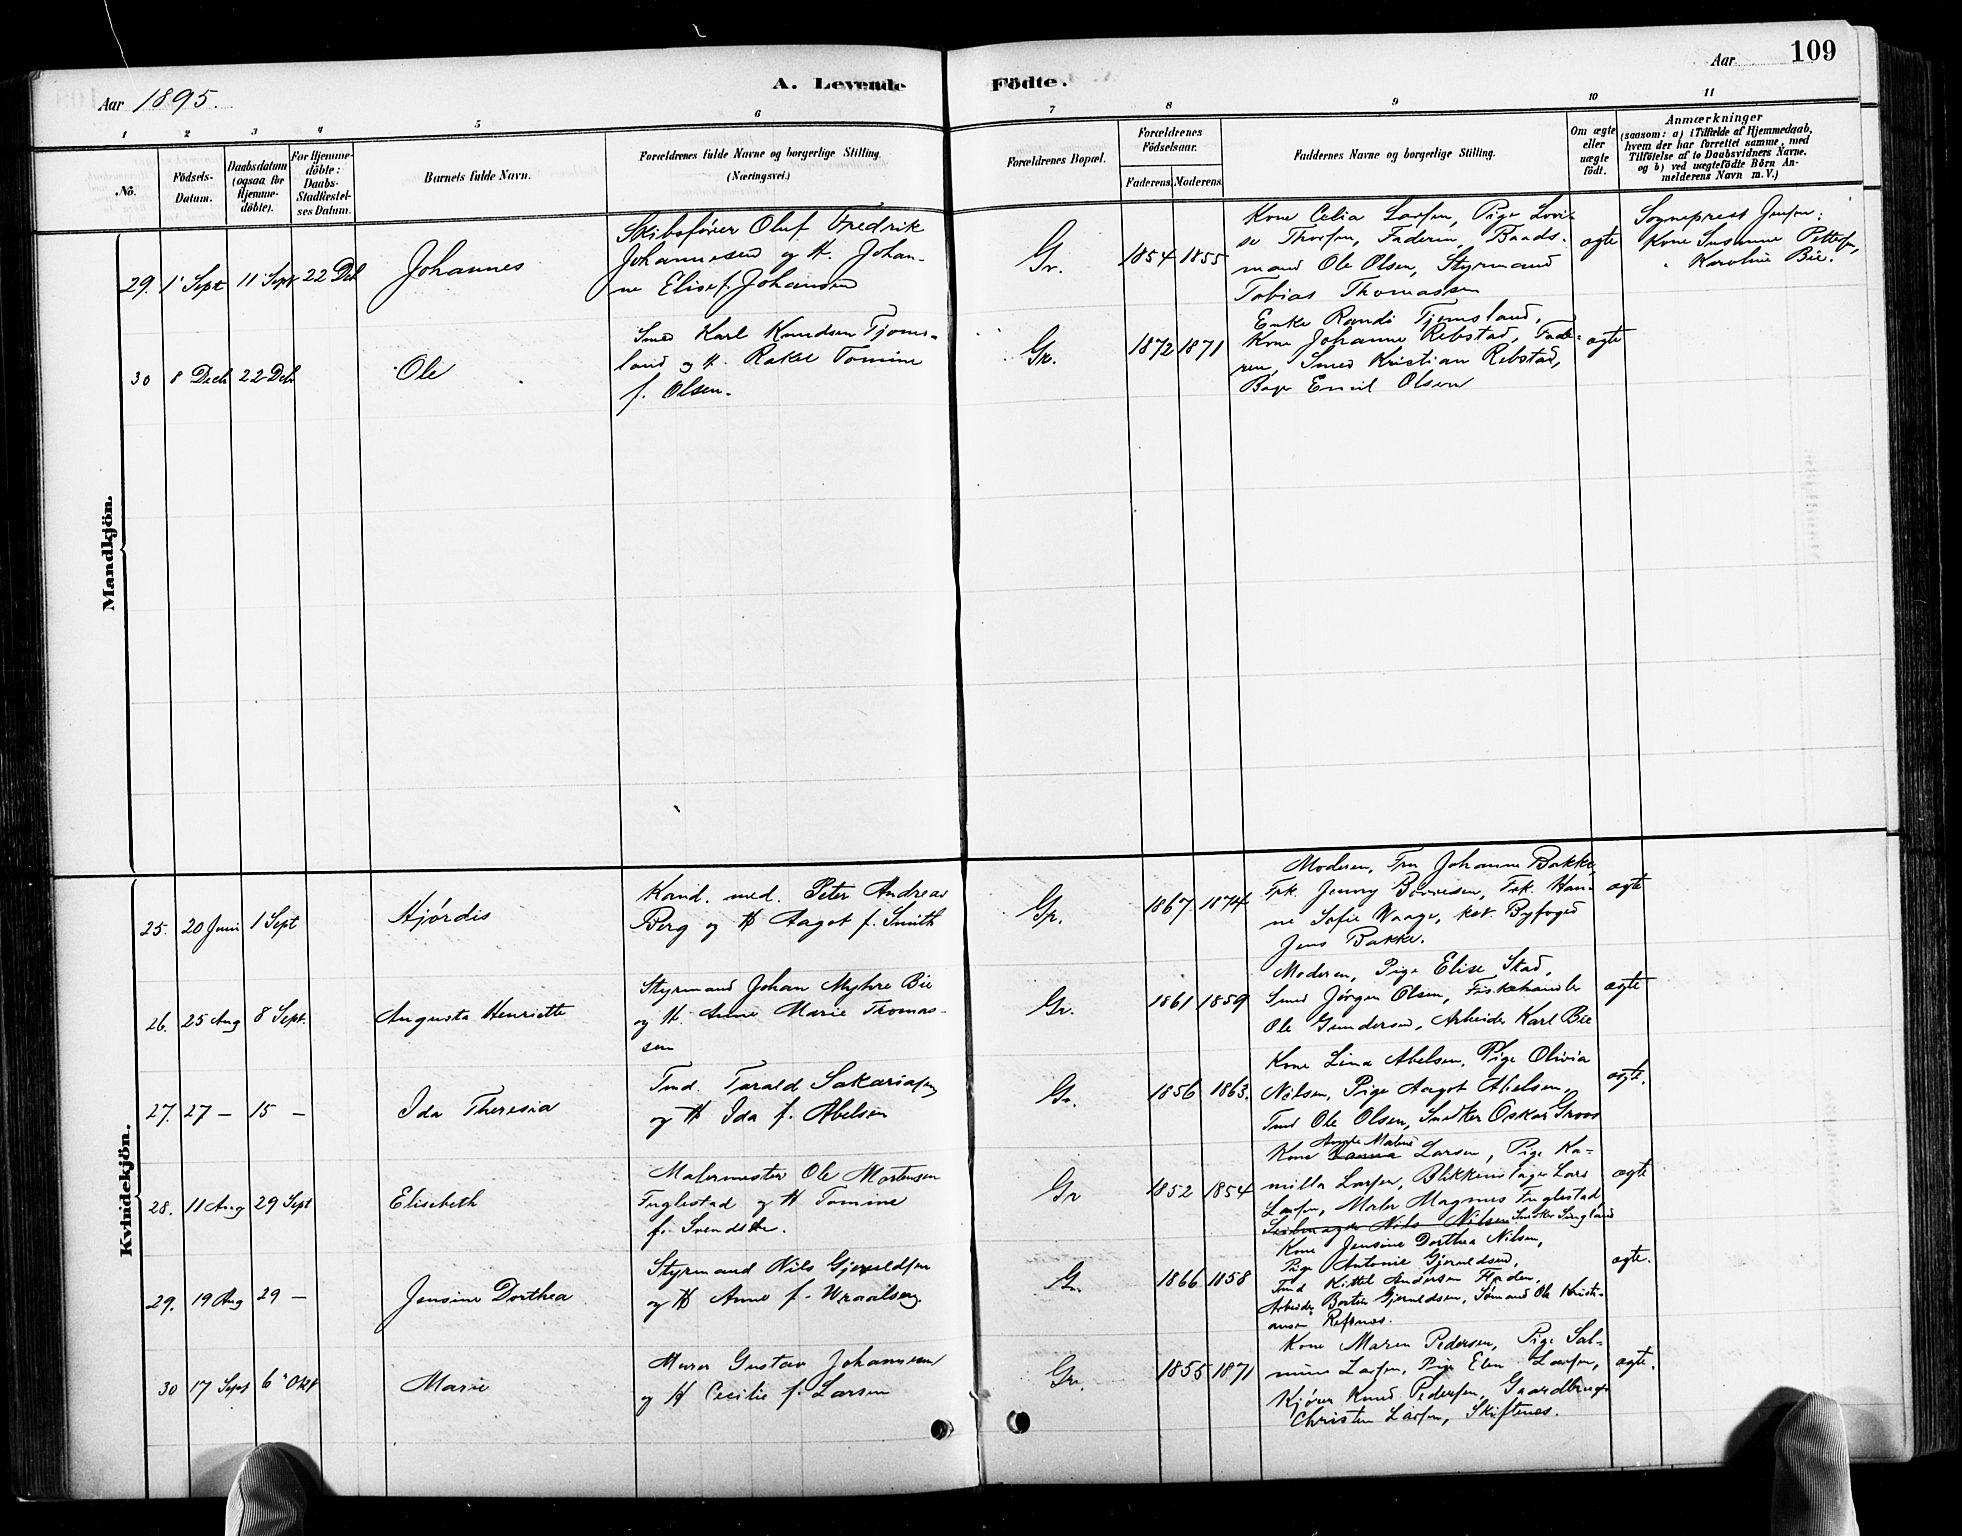 Aar 1895.
A. Levende Födte.
Aar
109
1 2 3 4 5 6 7 8 9 10 11
No.
Födsels-
Datum.
Daabsdatum
(ogsaa for
Hjemme-
döbte).
For Hjemme-
döbte:
Daabs-
Stadfæstel-
ses Datum.
Barnets fulde Navn.
Forældrenes fulde Navne og borgerlige Stilling
(Næringsvei.)
Forældrenes Bopæl.
Forældrenes
Födselsaar.
Faderens. Moderens.
Faddernes Navne og borgerlige Stilling.
Om ægte
eller
uægte
födt.
Anmærkninger
(saasom: a) i Tilfælde af Hjemmedaab,
hvem der har forrettet samme, med
Tilföielse af to Daabsvidners Navne.
og b) ved uægtefödte Börn An-
melderens Navn m. V.)
Mandkjön.
29. 1 Sept 11 Sept 22 Dcb
Johannes
Skibsfører Oluf Fredrik
Johannesen og H. Johan-
ne Elise f. Johansen
Gr.
1854 1855
Kone Celia Larsen, Pige Lovi-
se Thorsen, Faderen, Baads-
mand Ole Olsen, Styrmand
Tobias Thomassen
ægte
Sogneprest Jensen;
Kone Susanne Pettersen,
" Karoline Bie.
30 8 Decb 22 Dcb
Ole
Smed Karl Knudsen Tjoms-
land og H. Rakel Tomine
f. Olsen.
Gr.
1872 1871
Enke Randi Tjomsland,
Kone Johanne Rebstad, Fade-
ren, Smed Kristian Rebstad,
Bager Emil Olsen
ægte
Kvindekjön.
25. 20 Juni 1 Sept
Hjördis
Kand. med. Peter Andreas
Berg og H Aagot f. Smith
Gr.
1867 1874
Moderen, Fru Johanne Bakke,
Frk. Jenny Børresen, Frk. Han-
ne Sofie Waage, kst. Byfoged
Jens Bakke.
ægte
26. 25 Aug 8 Sept.
Augusta Henriette
Styrmand Johan Myhre Bie
og H. Anne Marie Thomas-
sen
Gr.
1861 1859
Moderen, Pige Elise Stad,
Smed Jørgen Olsen, Fiskehandler
Ole Gundersen, Arbeider Karl Bie
ægte
27. 27 — 15 —
Ida Theresia
Tmd. Tarald Sakariasen
og H Ida f. Abelsen
Gr.
1856 1863.
Kone Lina Abelsen, Pige Olivia
Nilsen, Pige Aagot Abelsen,
Tmd Ole Olsen, Snedker Oskar Groos
ægte.
28. 11 Aug 29 Sept
Elisebeth
Malermester Ole Mortensen
Fuglestad og H Tomine
f. Svendsen.
Gr
1852 1854
Kone Larsen, Pige Ka-
milla Larsen, Blikkenslager Lars
Larsen, Maler Magnus Fuglestad,
Nils Nilsen Snedker
ægte
29. 19 Aug 29 —
Jensine Dorthea
Styrmand Nils Gjeruldsen
og H Anne f. Wraalsen.
Gr.
1866 1858
Kone Jensine Dorthea Nilsen,
Pige Antonie Gjeruldsen,
Tmd Kittel Andersen Fladen,
Arbeider Gjeruldsen, Sømand Ole Kristi-
ansen Refsnes.
ægte.
30 17 Sept 6 Okt
Marie
Murer Gustav Johannesen
og H Cecilie f. Larsen
Gr.
1855 1871
Kone Maren Pedersen, Pige Sal-
mine Larsen, Pige Elen Larsen,
Kjører Knud Pedersen, Gaardbruger
Christen Larsen, Skiftenes.
ægte.